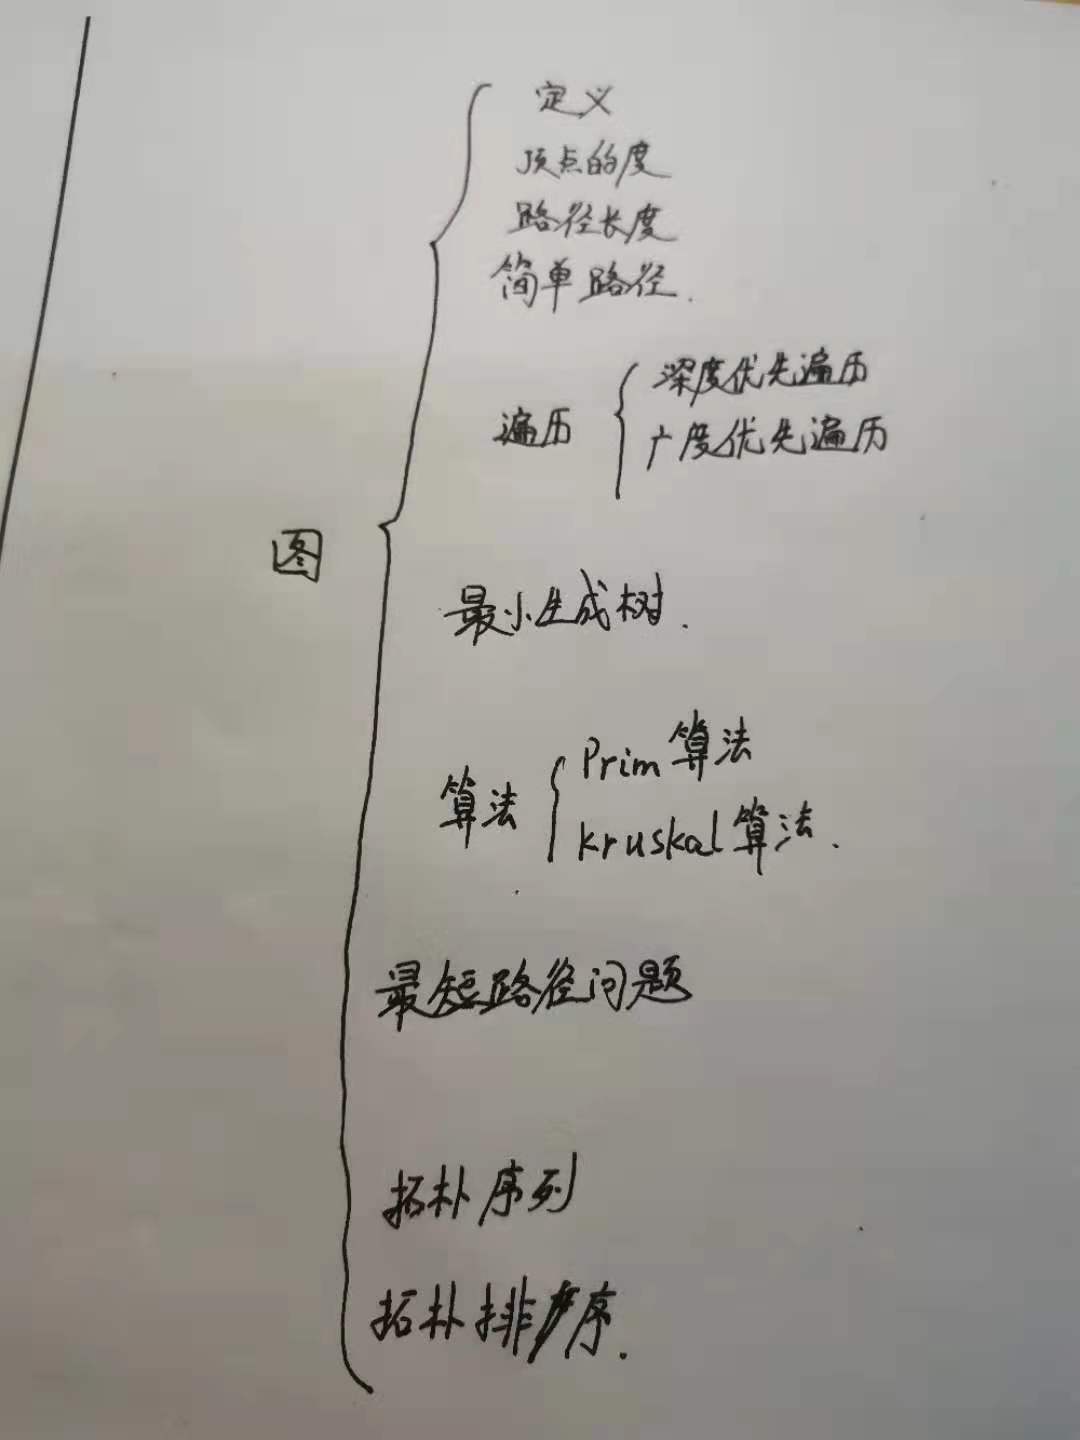 定义
顶点的度
路径长度
简单路径.
深度优先遍历
遍历
广度优先遍历
图
最小生成树.
Prim算法
算法
kruskal算法.
最短路径问题
拓朴序列
拓朴排序.